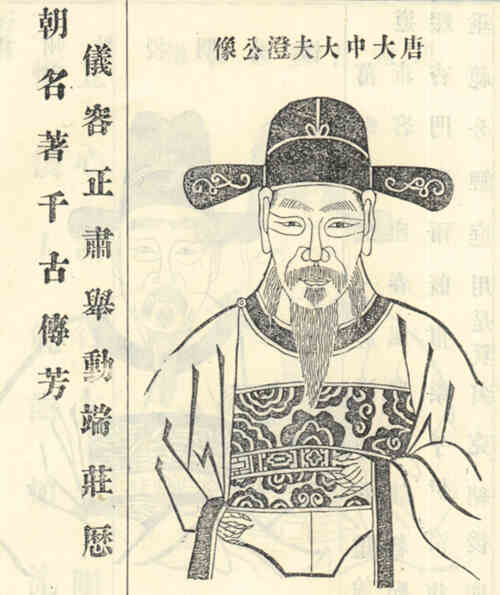 唐大中大夫澄公像
儀容正肅舉動端莊歷
朝名著千古傳芳